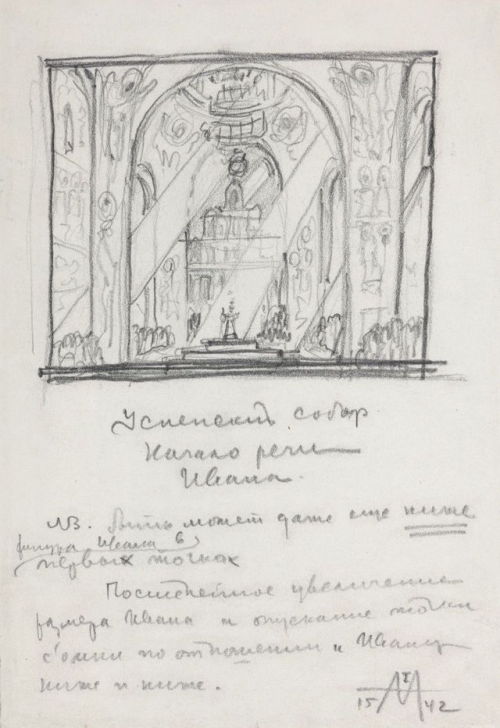 Успенский собор.
Начало речи
Ивана.
NB. Быть может даже еще ниже
фигура Ивана в
первых точках
Постепенное увеличение
размера Ивана и опускание точки
с'емки по отношении к Ивану
ниже и ниже.
15 III 42